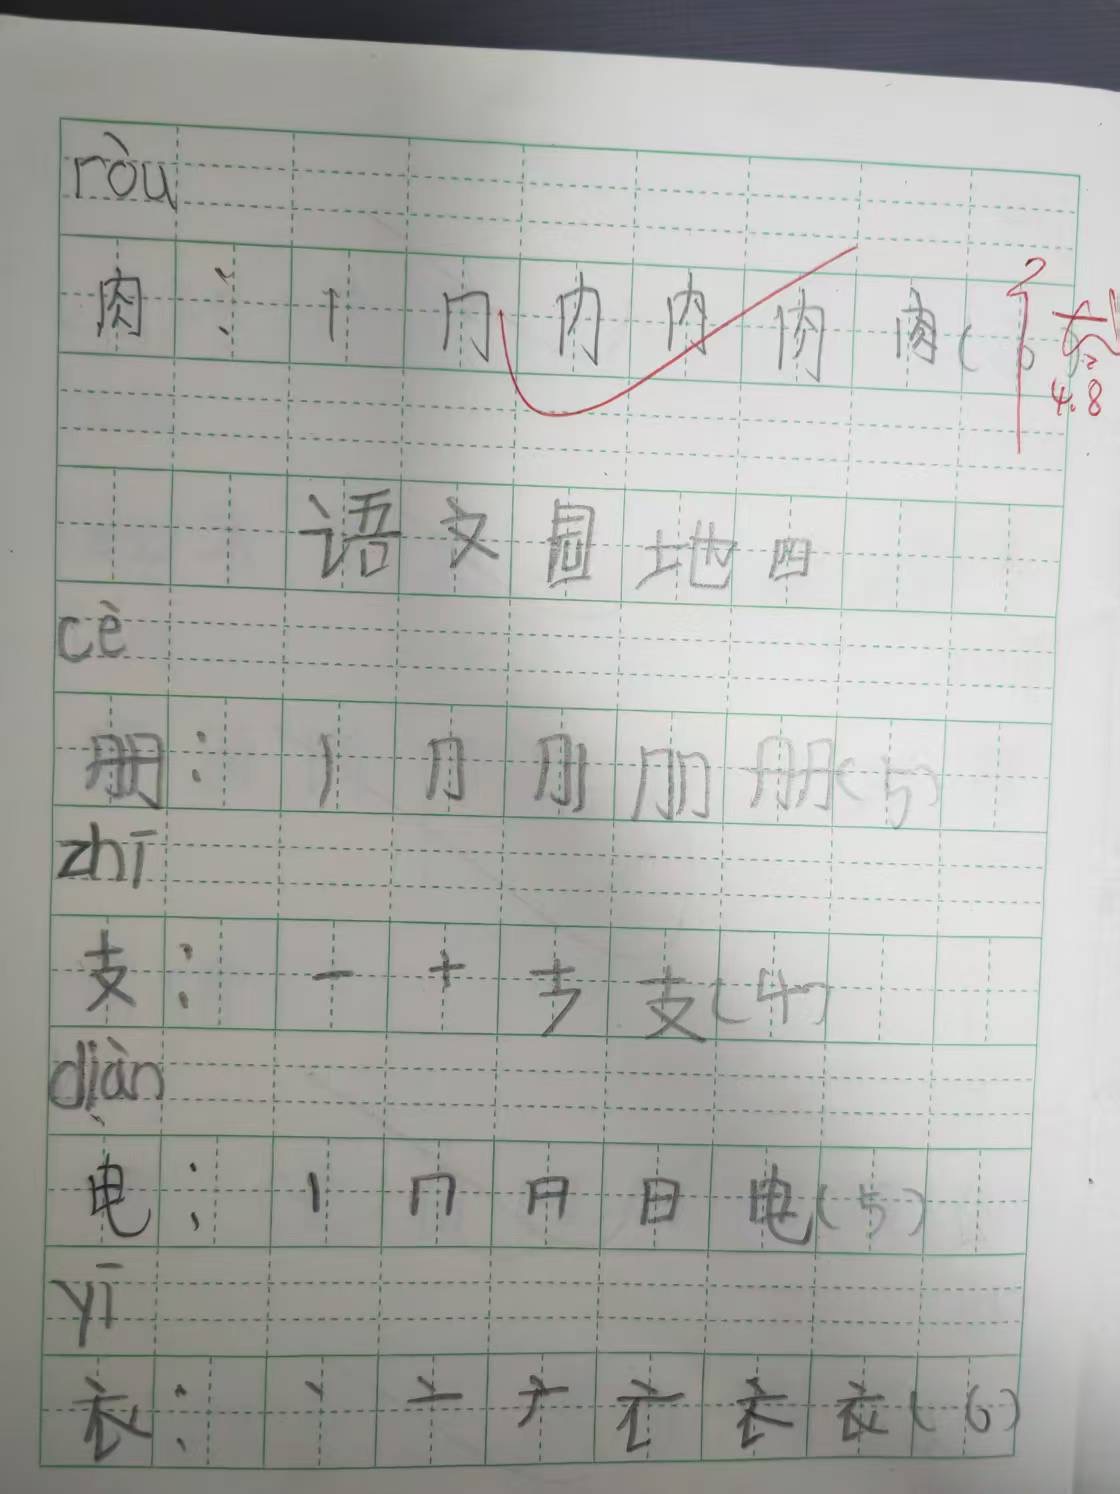 ròu
肉: 丨 冂 内 内 肉 肉 (6)
4.8
语文园地四
cè
册: 丿 ⺆ 刖 册 册 (5)
zhī
支: 一 十 支 (4)
diàn
电: 丨 冂 日 电 (5)
yī
衣: 丶 亠 衣 (6)